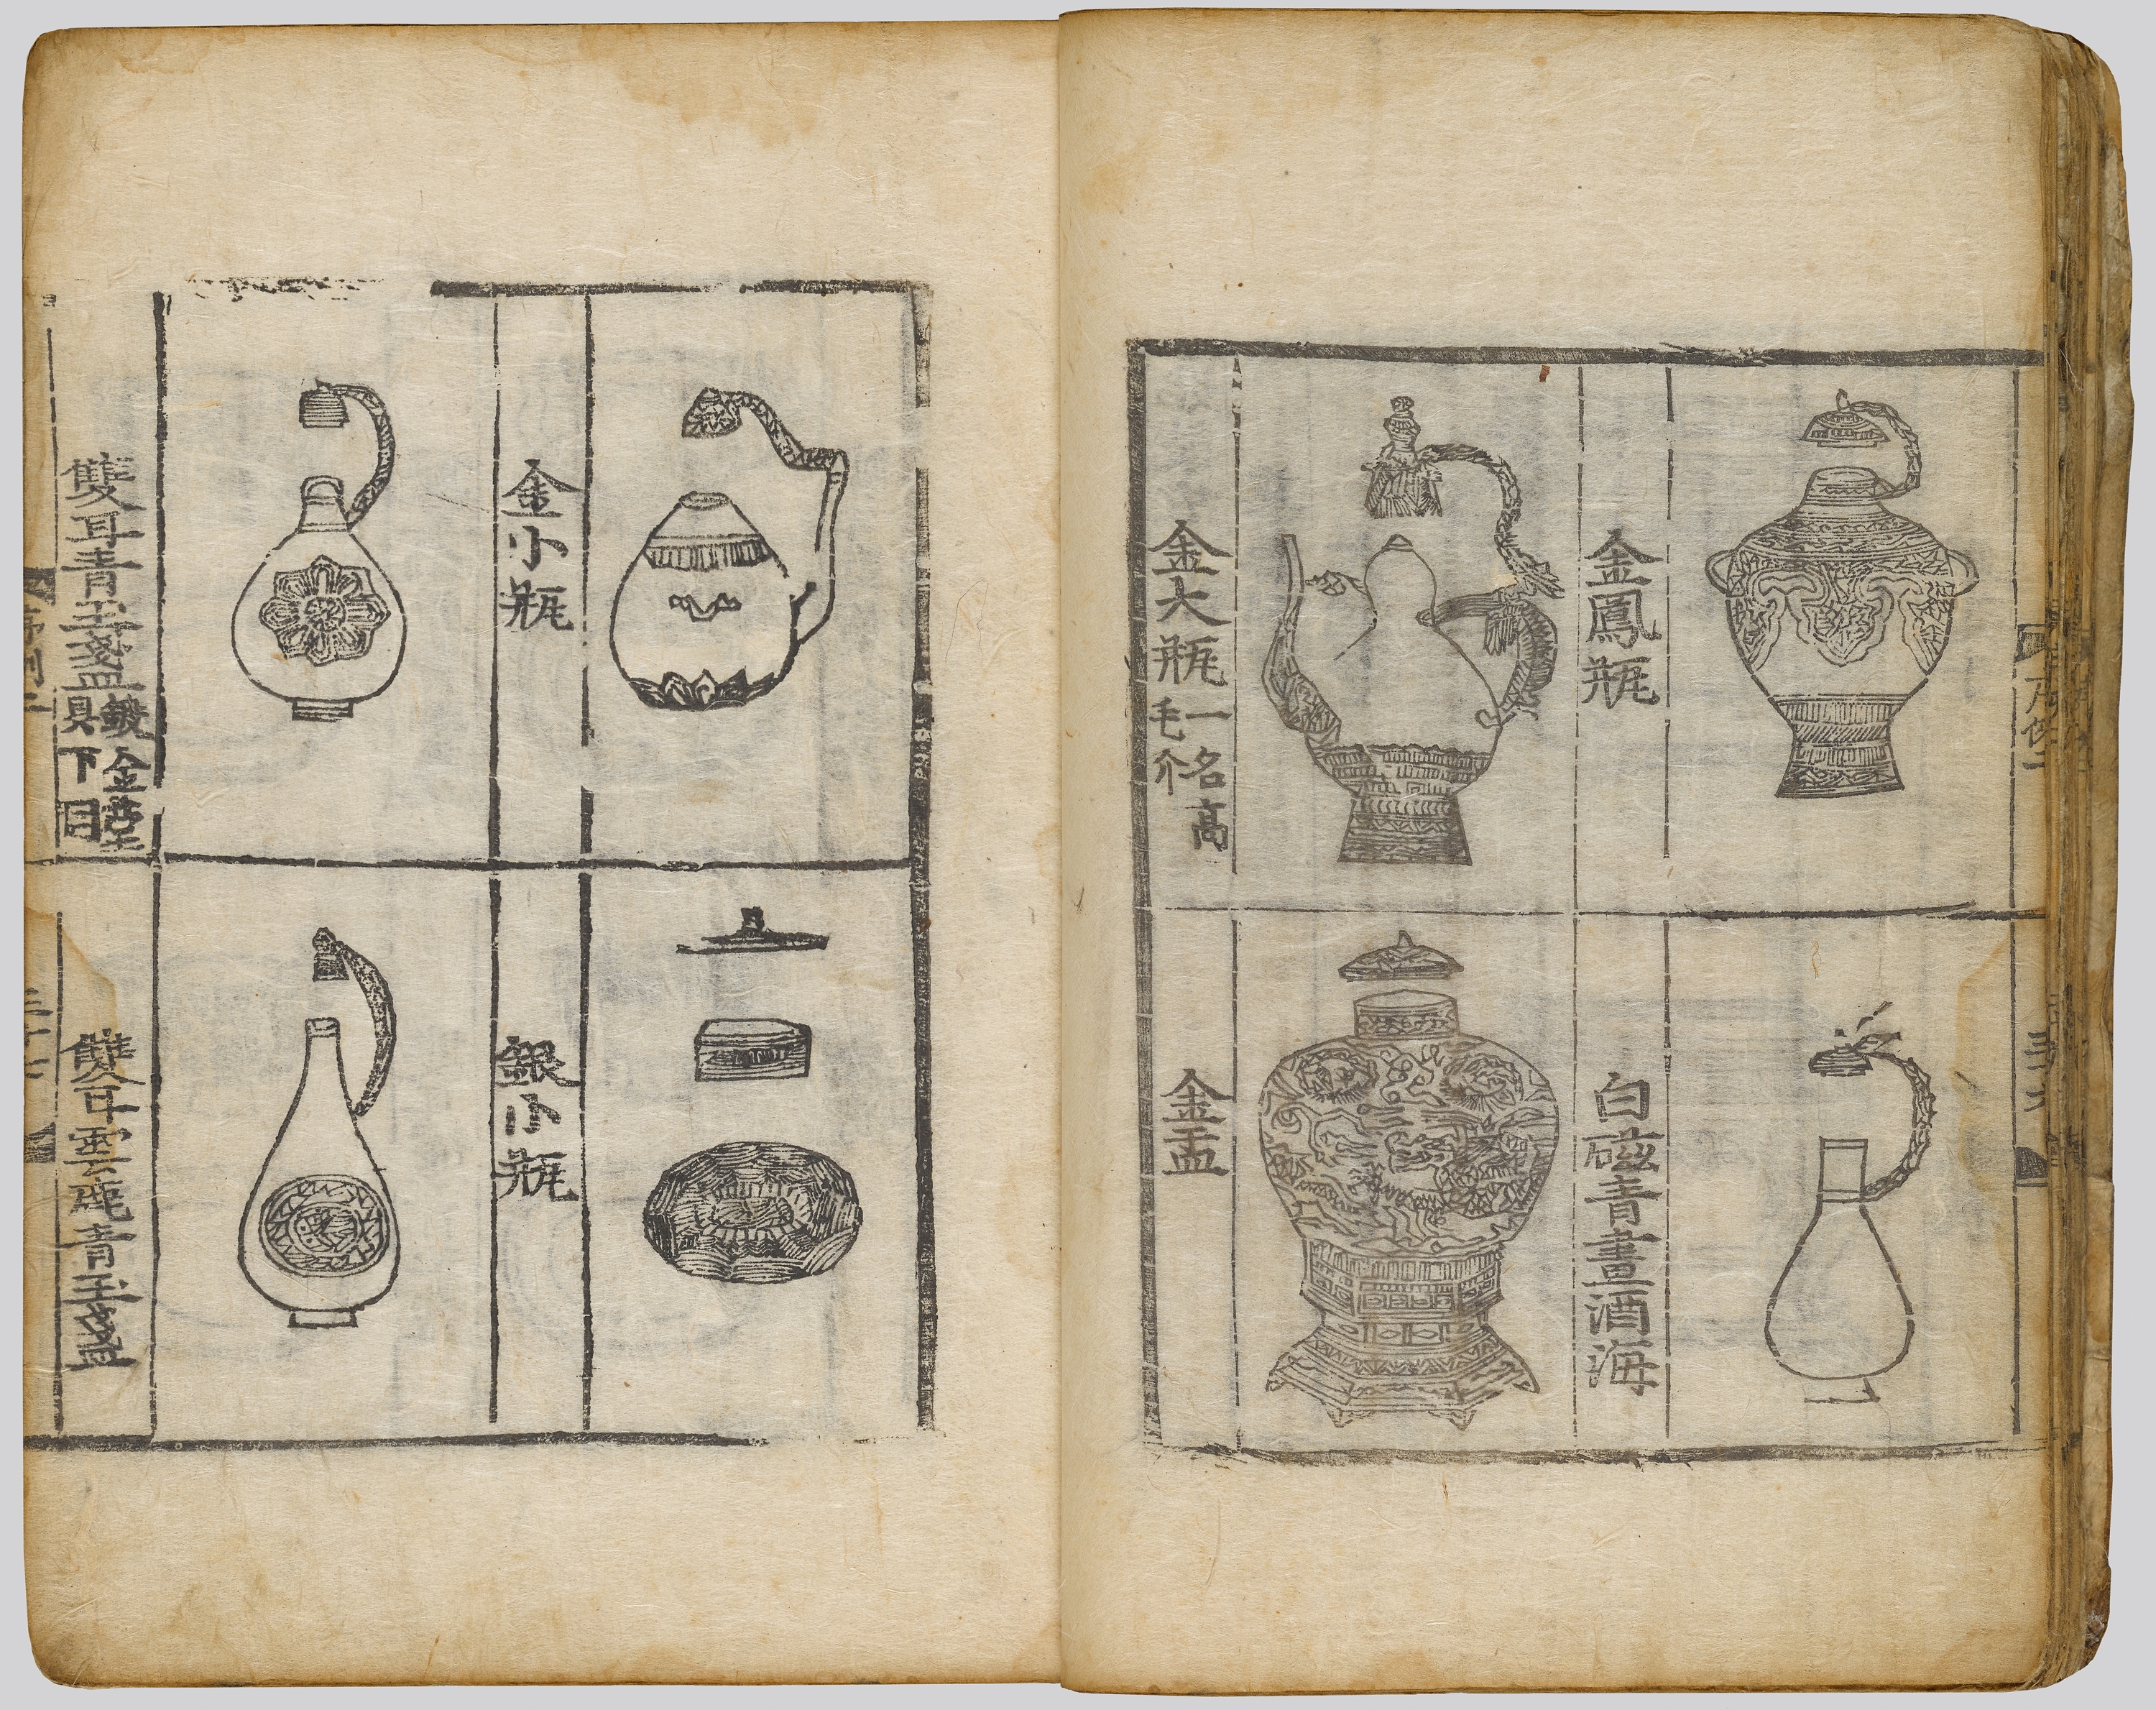 金鳳瓶
白磁青畫酒海
金大瓶 一名高
毛介
金盂
金小瓶
銀小瓶
雙耳青玉盞 鍍金臺
具下同
雙耳雲龍青玉盞